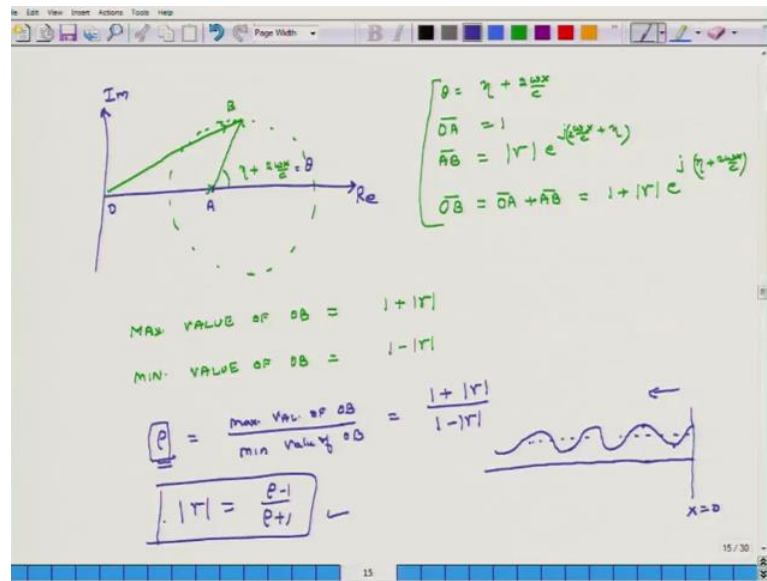 Edit View Insert Actions Tools Help
Page Width
Im
B
η + 2ωx/c = θ
O
A
Re
θ = η + 2ωx/c
OA = 1
AB = |r| e^j(2ωx/c + η)
OB = OA + AB = 1 + |r| e^j(η + 2ωx/c)
MAX VALUE OF OB = 1 + |r|
MIN. VALUE OF OB = 1 - |r|
ρ = max. VAL. OF OB / min value of OB = 1 + |r| / 1 - |r|
|r| = ρ-1 / ρ+1
x=0
15 / 30
15